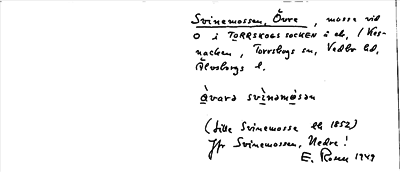 Svinemossen, Övre, mosse vid
O i TORRSKOGS SOCKEN i ek, (Nos-
nacken, Torrskogs sn, Vedbo hd,
Älvsborgs l.
àvarə svìnəmòsən
(Lilla Svinemosse ek 1852)
Jfr Svinemossen, Nedre!
E. Rosen 1949